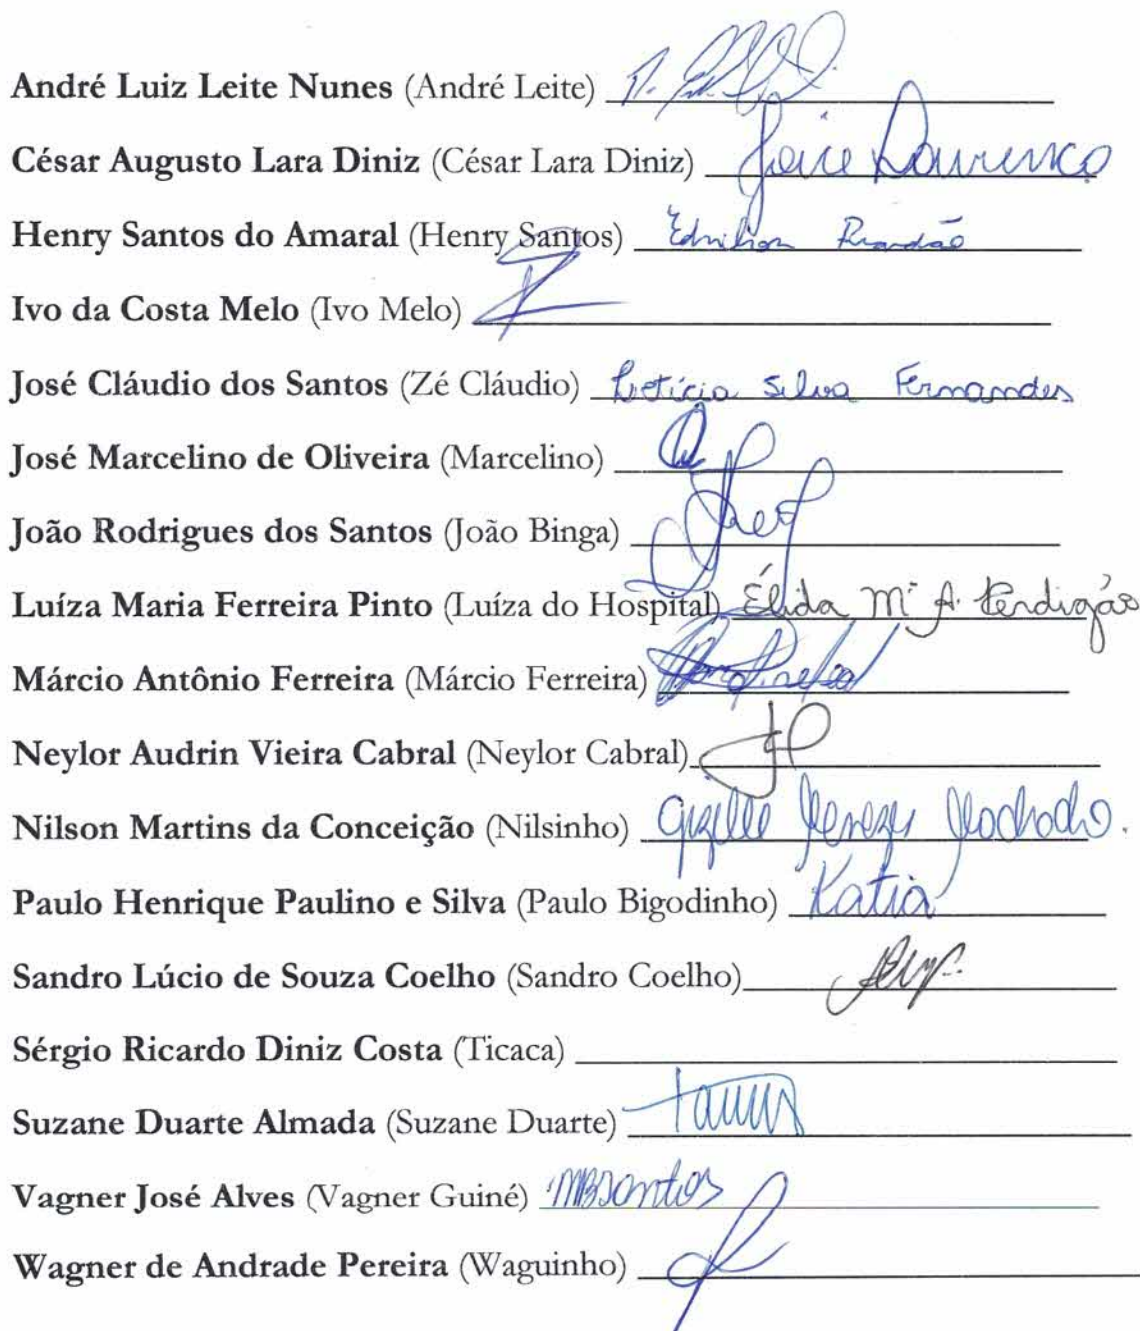 André Luiz Leite Nunes (André Leite)
César Augusto Lara Diniz (César Lara Diniz) Joice Lourenço
Henry Santos do Amaral (Henry Santos) Ednilson Brandão
Ivo da Costa Melo (Ivo Melo)
José Cláudio dos Santos (Zé Cláudio) Letícia Silva Fernandes
José Marcelino de Oliveira (Marcelino)
João Rodrigues dos Santos (João Binga)
Luíza Maria Ferreira Pinto (Luíza do Hospital) Élida Mª A. Perdigão
Márcio Antônio Ferreira (Márcio Ferreira)
Neylor Audrin Vieira Cabral (Neylor Cabral)
Nilson Martins da Conceição (Nilsinho) Gizelle Menezes Machado.
Paulo Henrique Paulino e Silva (Paulo Bigodinho) Katia
Sandro Lúcio de Souza Coelho (Sandro Coelho)
Sérgio Ricardo Diniz Costa (Ticaca)
Suzane Duarte Almada (Suzane Duarte)
Vagner José Alves (Vagner Guiné) MBSantos
Wagner de Andrade Pereira (Waguinho)